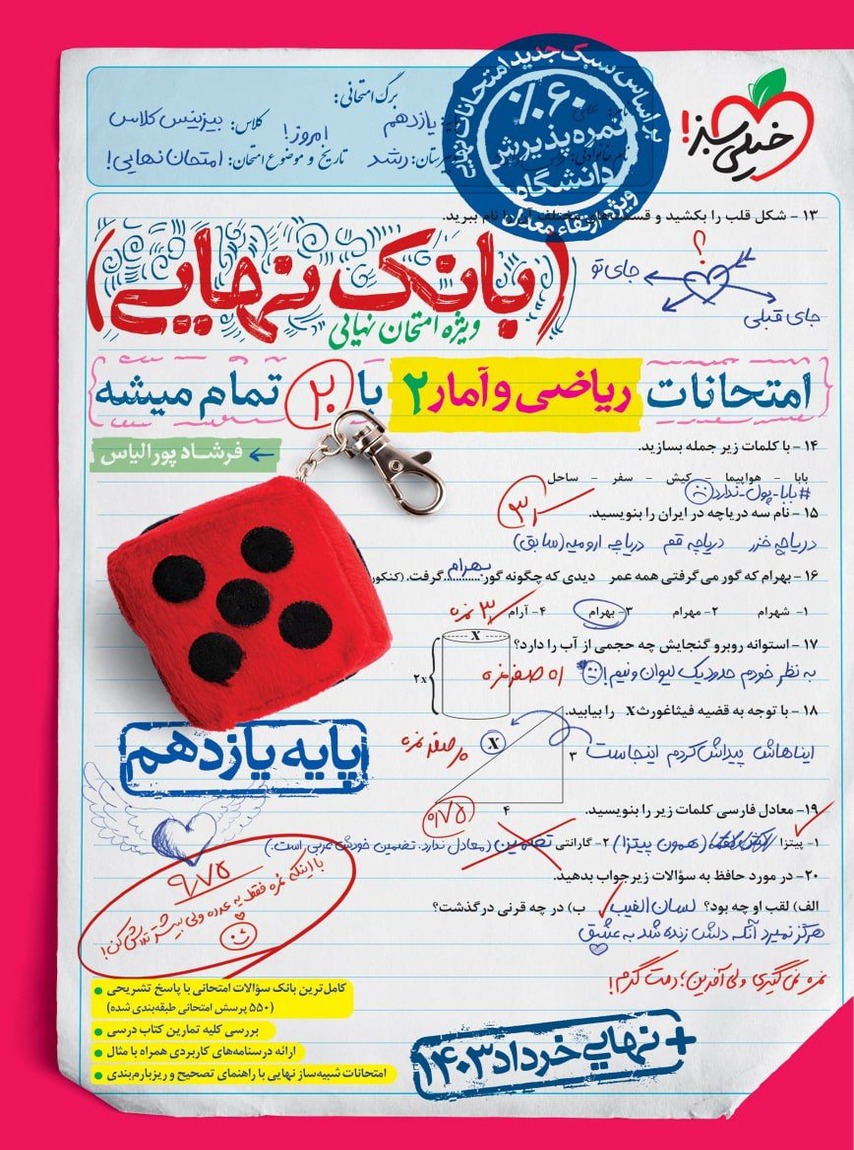 خیلی سبز!
بر اساس سبک جدید امتحانات نهایی
٪۶۰
نمره پذیرش
دانشگاه
ویژه ارتقاء معدل
برگ امتحانی:
یازدهم
کلاس: بیزینس کلاس
رشد
تاریخ و موضوع امتحان: امروز! امتحان نهایی!
۱۳ - شکل قلب را بکشید و قسمت‌های مختلف آن را نام ببرید.
؟
جای تو
جای قبلی
(بانک نهایی)
ویژه امتحان نهایی
امتحانات ریاضی و آمار ۲ با ۲۰ تمام میشه
فرشاد پورالیاس
۱۴ - با کلمات زیر جمله بسازید.
بابا - هواپیما - کیش - سفر - ساحل
#بابا-پول-ندارد
۱۵ - نام سه دریاچه در ایران را بنویسید.
دریاچه خزر دریاچه قم دریاچه ارومیه (سابق)
۱۶ - بهرام که گور می‌گرفتی همه عمر دیدی که چگونه گور بهرام گرفت. (کنکور
۱- شهرام ۲- مهرام ۳- بهرام ۴- آرام
۱۷ - استوانه روبرو گنجایش چه حجمی از آب را دارد؟
X
۲x
به نظر خودم حدود یک لیوان و نیم!
۱۸ - با توجه به قضیه فیثاغورث X را بیابید.
ایناهاش پیداش کردم اینجاست
X
۳
۴
پایه یازدهم
۱۹- معادل فارسی کلمات زیر را بنویسید.
۱- پیتزا (همون پیتزا) ۲- گارانتی تضمین (معادل ندارد. تضمین خودش عربی است.)
۲۰- در مورد حافظ به سؤالات زیر جواب بدهید.
الف) لقب او چه بود؟ لسان الغیب ب) در چه قرنی درگذشت؟
هرگز نمیرد آنکه دلش زنده شد به عشق
نمره نمی‌گیری ولی آفرین؛ دمت گرم!
۹/۷۵
با اینکه نمره فقط یه عدده ولی بیشتر تلاش کن!
کامل‌ترین بانک سؤالات امتحانی با پاسخ تشریحی
(۵۵۰ پرسش امتحانی طبقه‌بندی شده)
بررسی کلیه تمارین کتاب درسی
ارائه درسنامه‌های کاربردی همراه با مثال
امتحانات شبیه‌ساز نهایی با راهنمای تصحیح و ریزبارم‌بندی
+ نهایی خرداد ۱۴۰۳